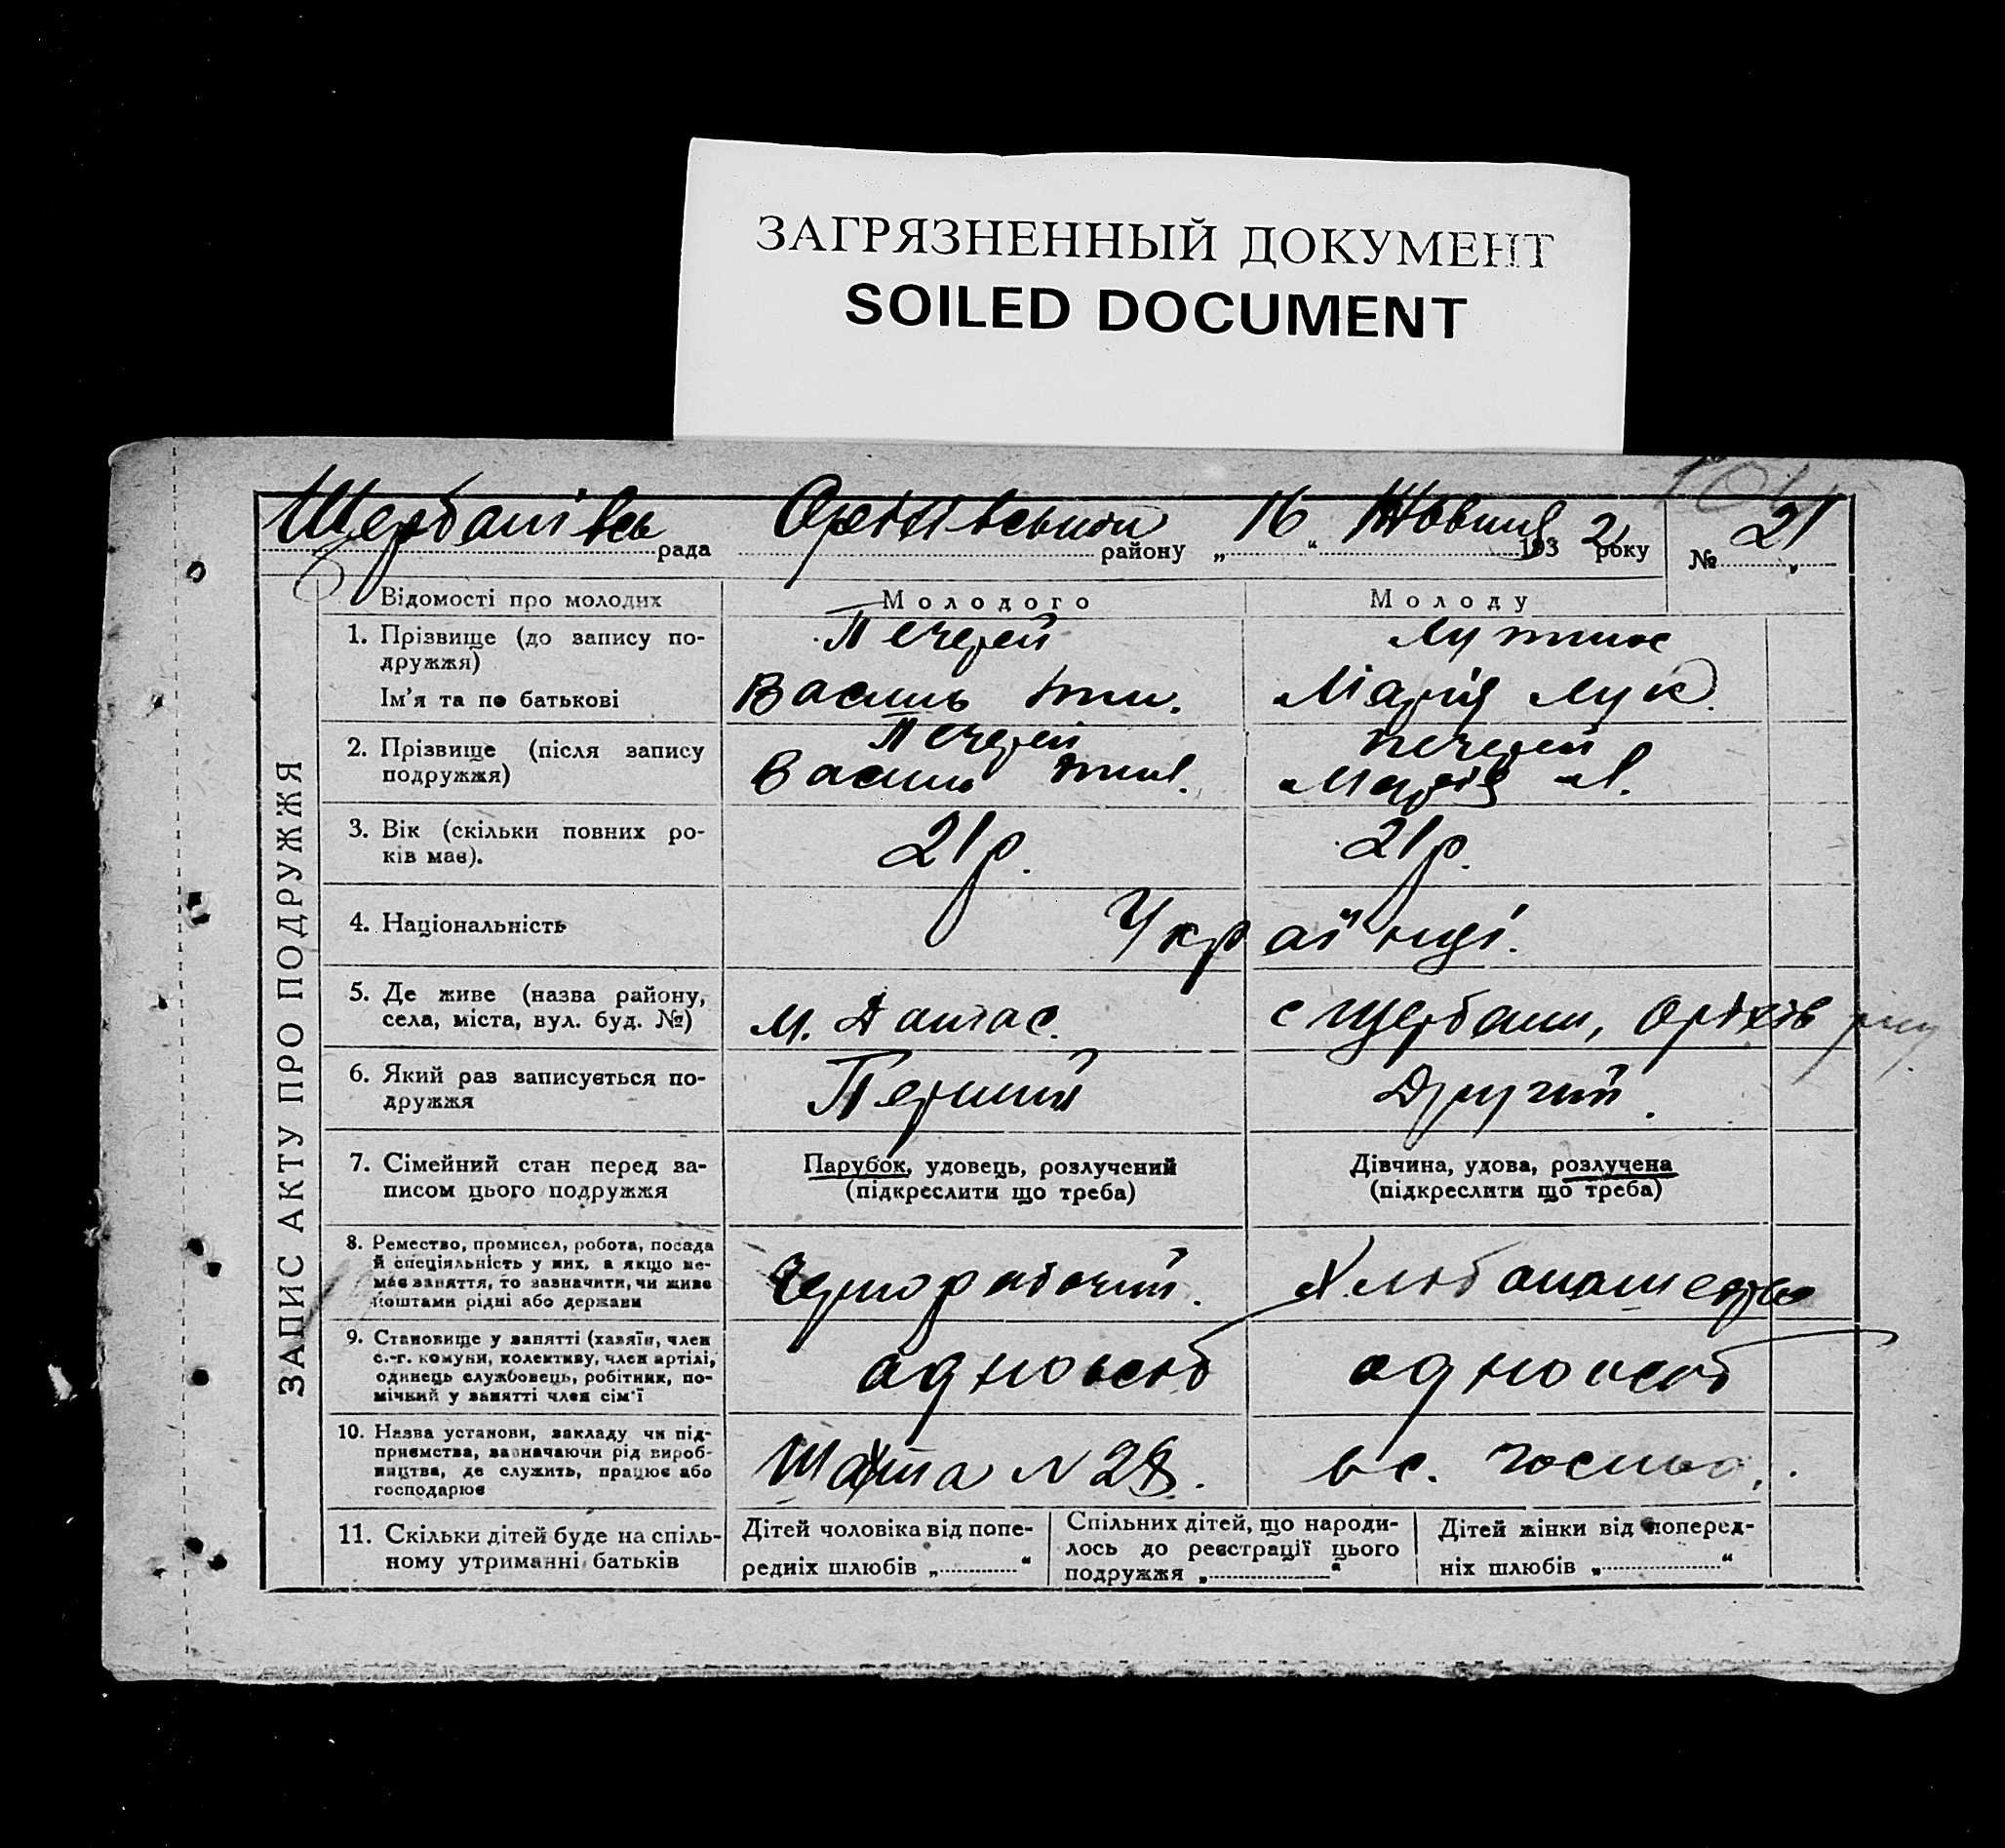 ЗАГРЯЗНЕННЫЙ ДОКУМЕНТ
SOILED DOCUMENT
Щербанівсь рада району „ 16 “ Жовтня 193 2 року № 21
ЗАПИС АКТУ ПРО ПОДРУЖЖЯ
Відомості про молодих
Молодого
Молоду
1. Прізвище (до запису по-
дружжя)
Ім'я та по батькові
Печерей
Василь
Марія Лук.
2. Прізвище (після запису
подружжя)
Печерей
Василь
Печерей
Марія Л.
3. Вік (скільки повних ро-
ків має).
21 р.
21 р.
4. Національність
Українці.
5. Де живе (назва району,
села, міста, вул. буд. №)
м.
с Щербани, Оріхів
6. Який раз записується по-
дружжя
Перший
Другий.
7. Сімейний стан перед за-
писом цього подружжя
Парубок, удовець, розлучений
(підкреслити що треба)
Дівчина, удова, розлучена
(підкреслити що треба)
8. Ремество, промисел, робота, посада
й спеціяльність у них, а якщо не-
має заняття, то зазначити, чи живе
коштами рідні або держави
Чернорабочий.
9. Становище у занятті (хазяїн, член
с.-г. комуни, колективу, член артілі,
одинець службовець, робітник, по-
мічний у занятті член сім'ї
одноосіб
одноосіб
10. Назва установи, закладу чи під-
приємства, зазначаючи рід вироб-
ництва, де служить, працює або
господарює
Шахта N 28.
в с. госпо.
11. Скільки дітей буде на спіль-
ному утриманні батьків
Дітей чоловіка від попе-
редніх шлюбів „ “
Спільних дітей, що народи-
лось до реєстрації цього
подружжя „ “
Дітей жінки від поперед-
ніх шлюбів „ “